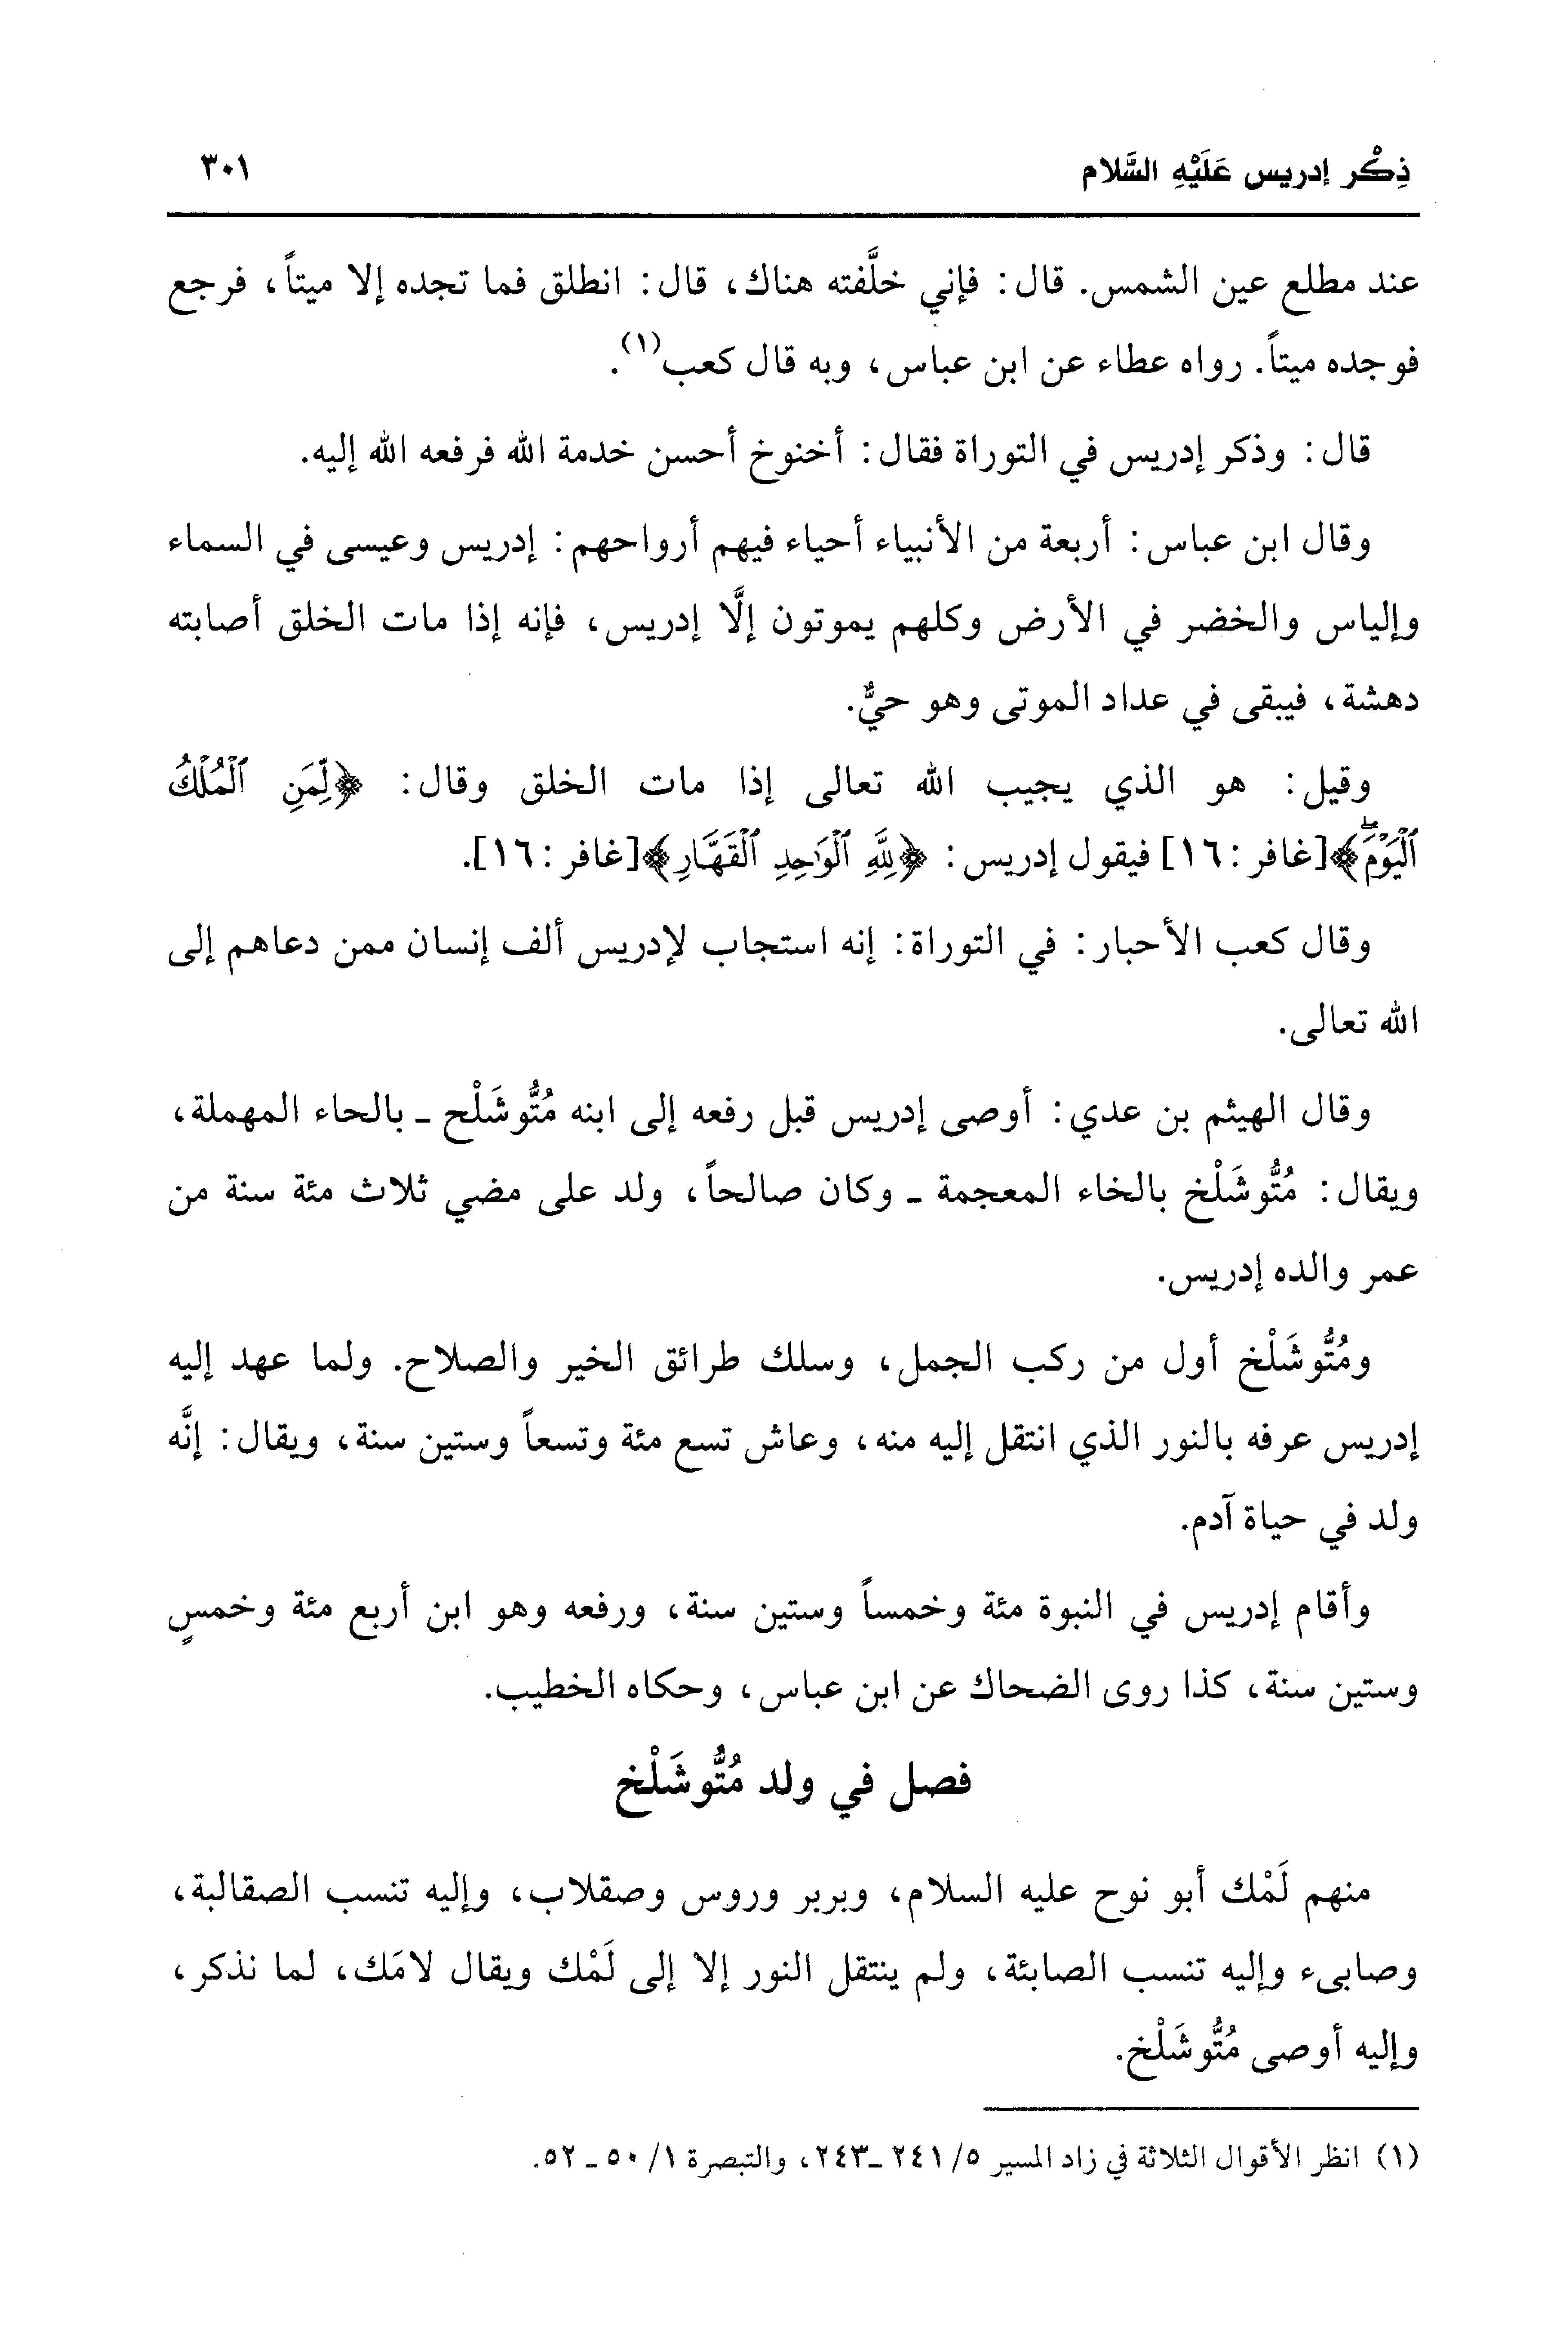 ذِكْر إدريس عَلَيْهِ السَّلام ٣٠١
عند مطلع عين الشمس. قال: فإني خلَّفته هناك، قال: انطلق فما تجده إلا ميتاً، فرجع
فوجده ميتاً. رواه عطاء عن ابن عباس، وبه قال كعب(١).
قال: وذكر إدريس في التوراة فقال: أخنوخ أحسن خدمة الله فرفعه الله إليه.
وقال ابن عباس: أربعة من الأنبياء أحياء فيهم أرواحهم: إدريس وعيسى في السماء
وإلياس والخضر في الأرض وكلهم يموتون إلَّا إدريس، فإنه إذا مات الخلق أصابته
دهشة، فيبقى في عداد الموتى وهو حيٌّ.
وقيل: هو الذي يجيب الله تعالى إذا مات الخلق وقال: ﴿لِّمَنِ ٱلۡمُلۡكُ
ٱلۡيَوۡمَۖ﴾[غافر: ١٦] فيقول إدريس: ﴿لِلَّهِ ٱلۡوَٰحِدِ ٱلۡقَهَّارِ﴾[غافر: ١٦].
وقال كعب الأحبار: في التوراة: إنه استجاب لإدريس ألف إنسان ممن دعاهم إلى
الله تعالى.
وقال الهيثم بن عدي: أوصى إدريس قبل رفعه إلى ابنه مُتُّوشَلْح - بالحاء المهملة،
ويقال: مُتُّوشَلْخ بالخاء المعجمة - وكان صالحاً، ولد على مضي ثلاث مئة سنة من
عمر والده إدريس.
ومُتُّوشَلْخ أول من ركب الجمل، وسلك طرائق الخير والصلاح. ولما عهد إليه
إدريس عرفه بالنور الذي انتقل إليه منه، وعاش تسع مئة وتسعاً وستين سنة، ويقال: إنَّه
ولد في حياة آدم.
وأقام إدريس في النبوة مئة وخمساً وستين سنة، ورفعه وهو ابن أربع مئة وخمسٍ
وستين سنة، كذا روى الضحاك عن ابن عباس، وحكاه الخطيب.
فصل في ولد مُتُّوشَلْخ
منهم لَمْك أبو نوح عليه السلام، وبربر وروس وصقلاب، وإليه تنسب الصقالبة،
وصابىء وإليه تنسب الصابئة، ولم ينتقل النور إلا إلى لَمْك ويقال لامَك، لما نذكر،
وإليه أوصى مُتُّوشَلْخ.
(١) انظر الأقوال الثلاثة في زاد المسير ٥/ ٢٤١ -٢٤٣، والتبصرة ١/ ٥٠ - ٥٢.